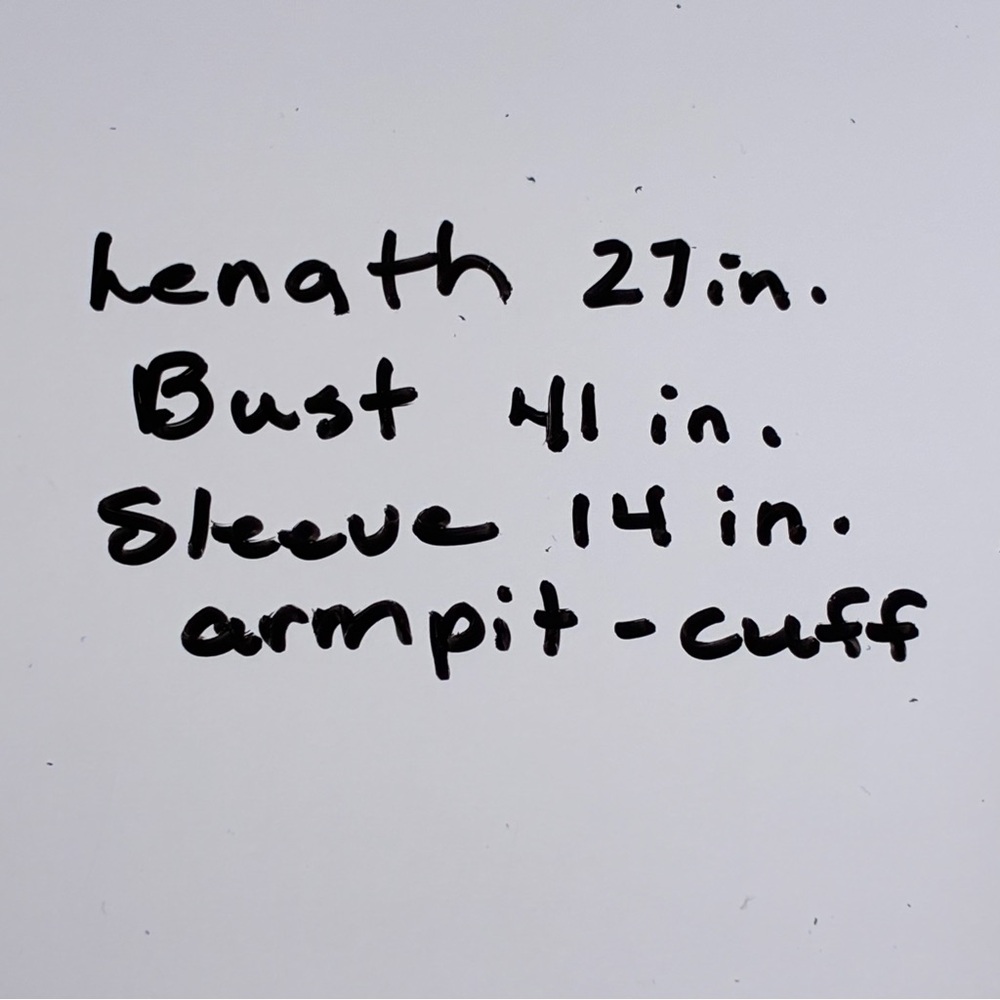 Length 27in.
Bust 41 in.
Sleeve 14 in.
armpit - cuff